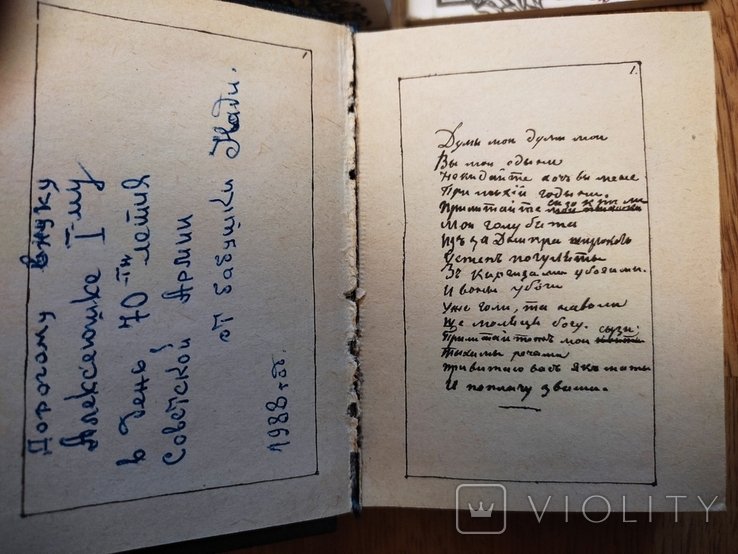 Дорогому внуку
Алексеюшке I-му
в день 70-ти летия
Советской Армии
от бабушки Нади.
1988 год.
1.
Думы мои думы мои
Вы мои одыни
Некидайте хоч вы мене
При лыхій годыни.
Прилитайте сизокрили
Мои голубята
Изъ за Днипра широкого
Устепъ погуляты
Зъ Киргизами убогими.
И воны убоги
Уже голи, та наволи
Ще молюця богу.
Прилитайтежъ мои сызи
Тыхимы речами
Привитаю васъ якъ
И поплачу звами.
VIOLITY